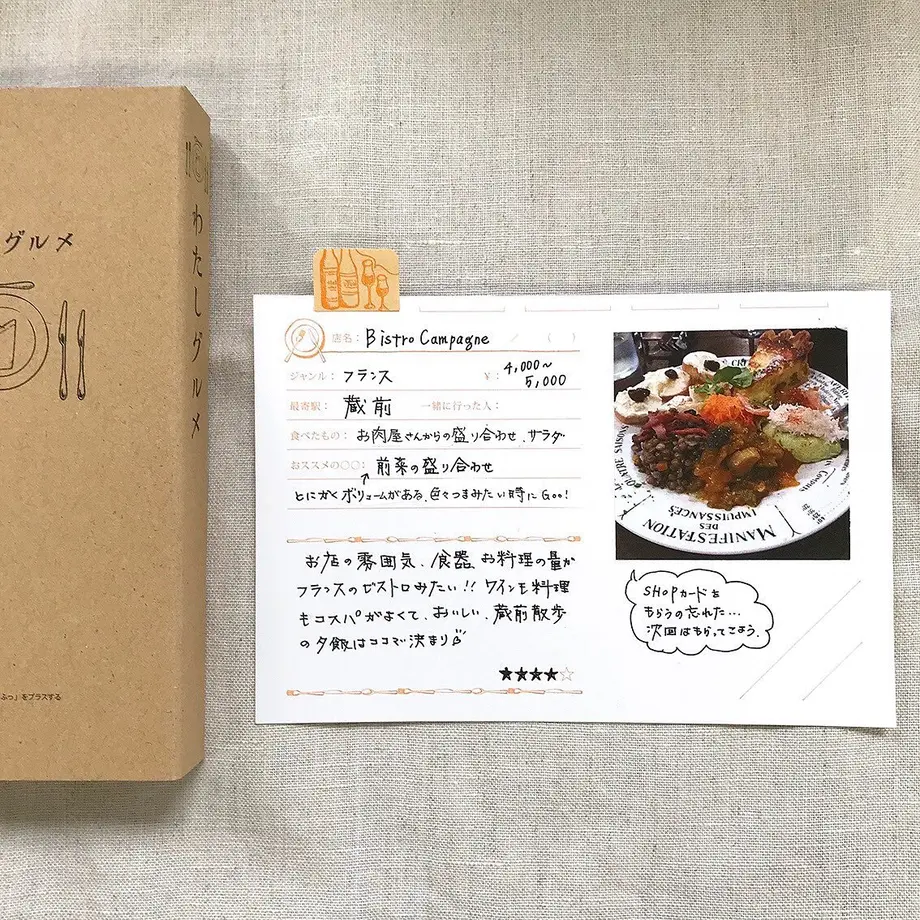 グルメ
わたしグルメ
ふっ」をプラスする
店名: Bistro Campagne / ( )
ジャンル: フランス ¥: 4,000〜5,000
最寄駅: 蔵前 一緒に行った人:
食べたもの: お肉屋さんからの盛り合わせ、サラダ
おススメの○○: 前菜の盛り合わせ
とにかくボリュームがある、色々つまみたい時にGoo!
お店の雰囲気、食器、お料理の量が
フランスのビストロみたい!! ワインも料理
もコスパがよくて、おいしい。蔵前散歩
の夕飯はココで決まり
★★★★☆
MANIFESTATION
DES
IMPUISSANCES
SHOPカードを
もらうの忘れた…
次回はもらってこよう。